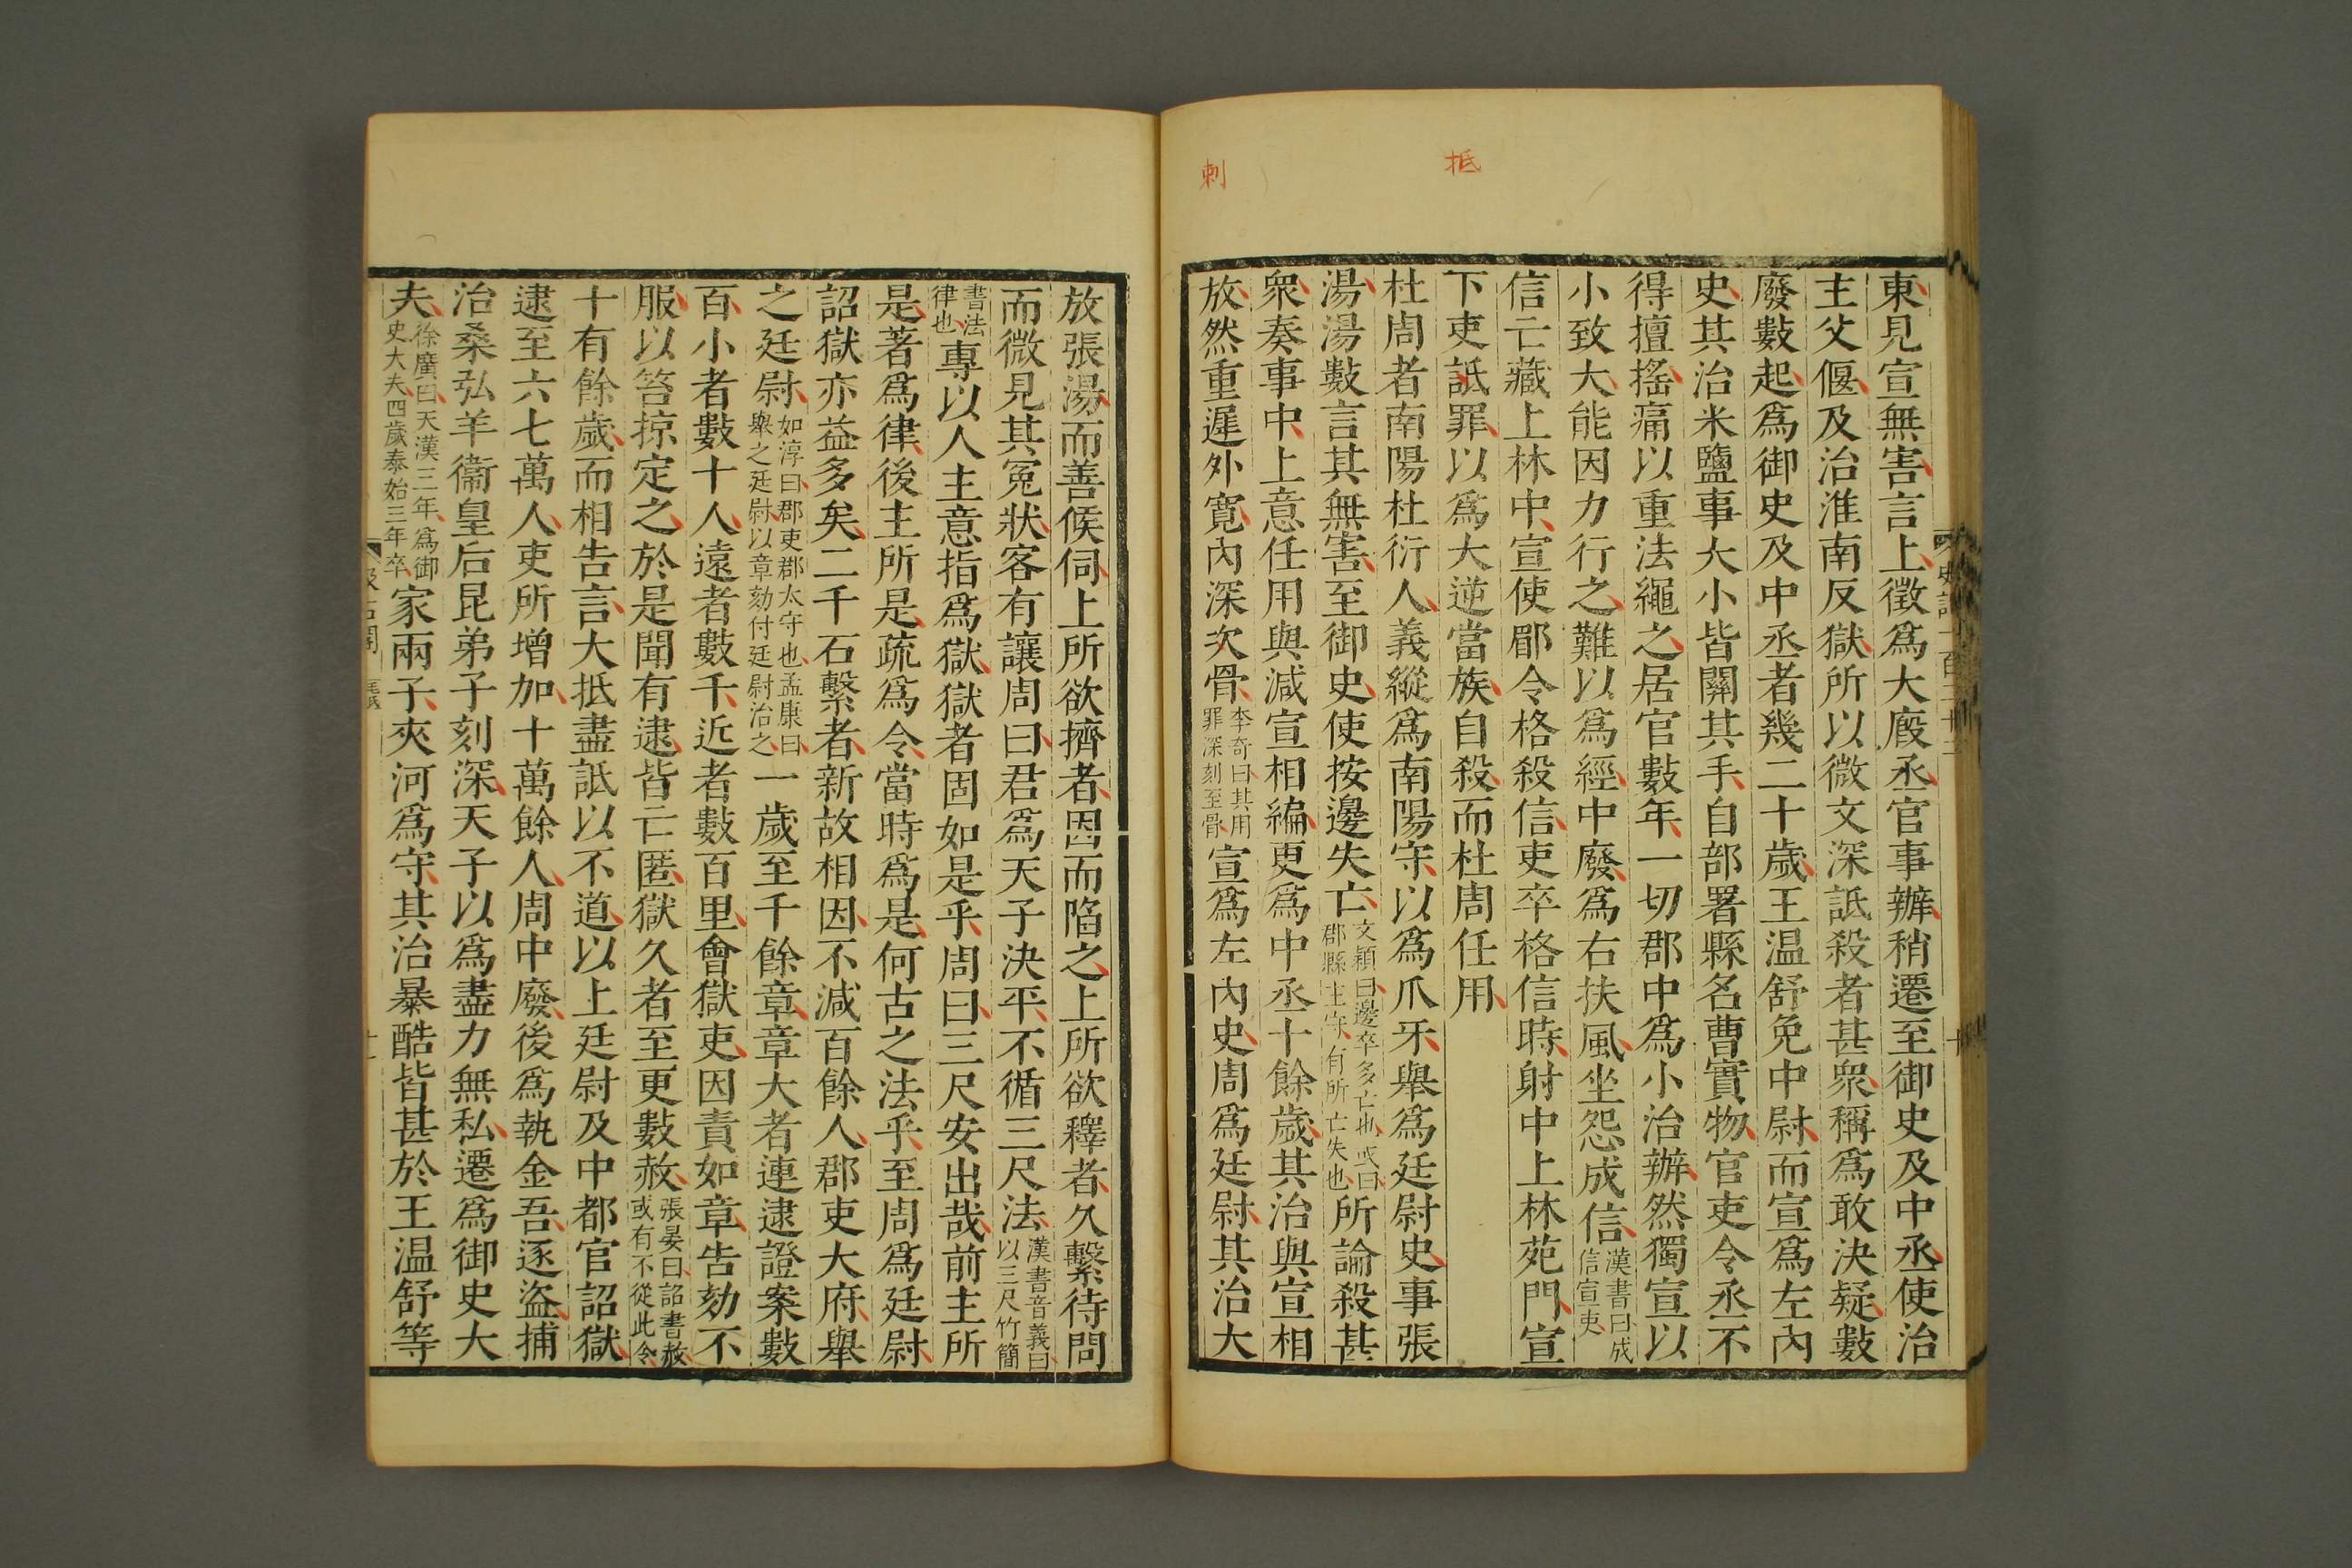 抵
刺
東見宣無害言上徵爲大廄丞官事辦稍遷至御史及中丞使治
主父偃及治淮南反獄所以微文深詆殺者甚衆稱爲敢決疑數
廢數起爲御史及中丞者幾二十歲王温舒免中尉而宣爲左內
史其治米鹽事大小皆關其手自部署縣名曹實物官吏令丞不
得擅搖痛以重法繩之居官數年一切郡中爲小治辦然獨宣以
小致大能因力行之難以爲經中廢爲右扶風坐怨成信漢書曰成信宣吏
信亡藏上林中宣使郿令格殺信吏卒格信時射中上林苑門宣
下吏詆罪以爲大逆當族自殺而杜周任用
杜周者南陽杜衍人義縱爲南陽守以爲爪牙舉爲廷尉史事張
湯湯數言其無害至御史使按邊失亡文穎曰邊卒多亡也或曰郡縣主守有所亡失也所論殺甚
衆奏事中上意任用與減宣相編更爲中丞十餘歲其治與宣相
放然重遲外寛內深次骨李奇曰其用罪深刻至骨宣爲左內史周爲廷尉其治大
放張湯而善候伺上所欲擠者因而陷之上所欲釋者久繫待問
而微見其冤狀客有讓周曰君爲天子決平不循三尺法漢書音義曰以三尺竹簡
書法律也專以人主意指爲獄獄者固如是乎周曰三尺安出哉前主所
是著爲律後主所是疏爲令當時爲是何古之法乎至周爲廷尉
詔獄亦益多矣二千石繫者新故相因不減百餘人郡吏大府舉
之廷尉如淳曰郡吏郡太守也孟康曰舉之廷尉以章劾付廷尉治之一歲至千餘章章大者連逮證案數
百小者數十人遠者數千近者數百里會獄吏因責如章告劾不
服以笞掠定之於是聞有逮皆亡匿獄久者至更數赦張晏曰詔書赦或有不從此令
十有餘歲而相告言大抵盡詆以不道以上廷尉及中都官詔獄
逮至六七萬人吏所增加十萬餘人周中廢後爲執金吾逐盜捕
治桑弘羊衞皇后昆弟子刻深天子以爲盡力無私遷爲御史大
夫徐廣曰天漢三年爲御史大夫四歲泰始三年卒家兩子夾河爲守其治暴酷皆甚於王温舒等